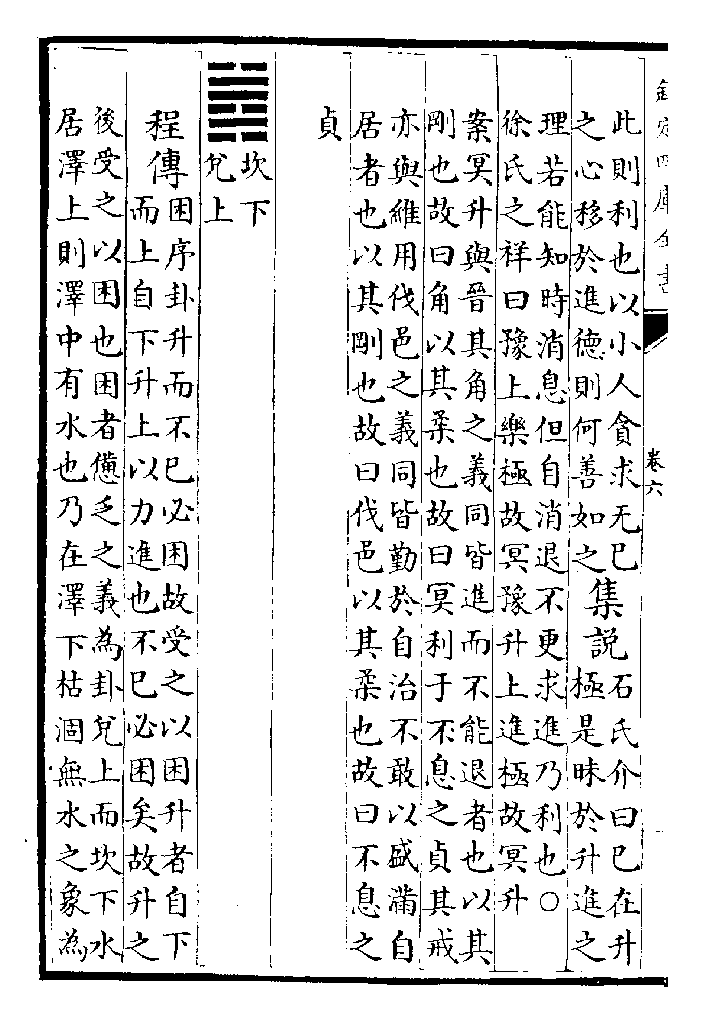 欽定四庫全書
卷六
此則利也以小人貪求无已
之心移於進德則何善如之
集説
石氏介曰已在升
極是昧於升進之
理若能知時消息但自消退不更求進乃利也○
徐氏之祥曰豫上樂極故冥豫升上進極故冥升
案冥升與晉其角之義同皆進而不能退者也以其
剛也故曰角以其柔也故曰冥利于不息之貞其戒
亦與維用伐邑之義同皆勤於自治不敢以盛滿自
居者也以其剛也故曰伐邑以其柔也故曰不息之
貞
坎下
兌上
程傳
困序卦升而不已必困故受之以困升者自下
而上自下升上以力進也不已必困矣故升之
後受之以困也困者憊乏之義為卦兌上而坎下水
居澤上則澤中有水也乃在澤下枯涸無水之象為